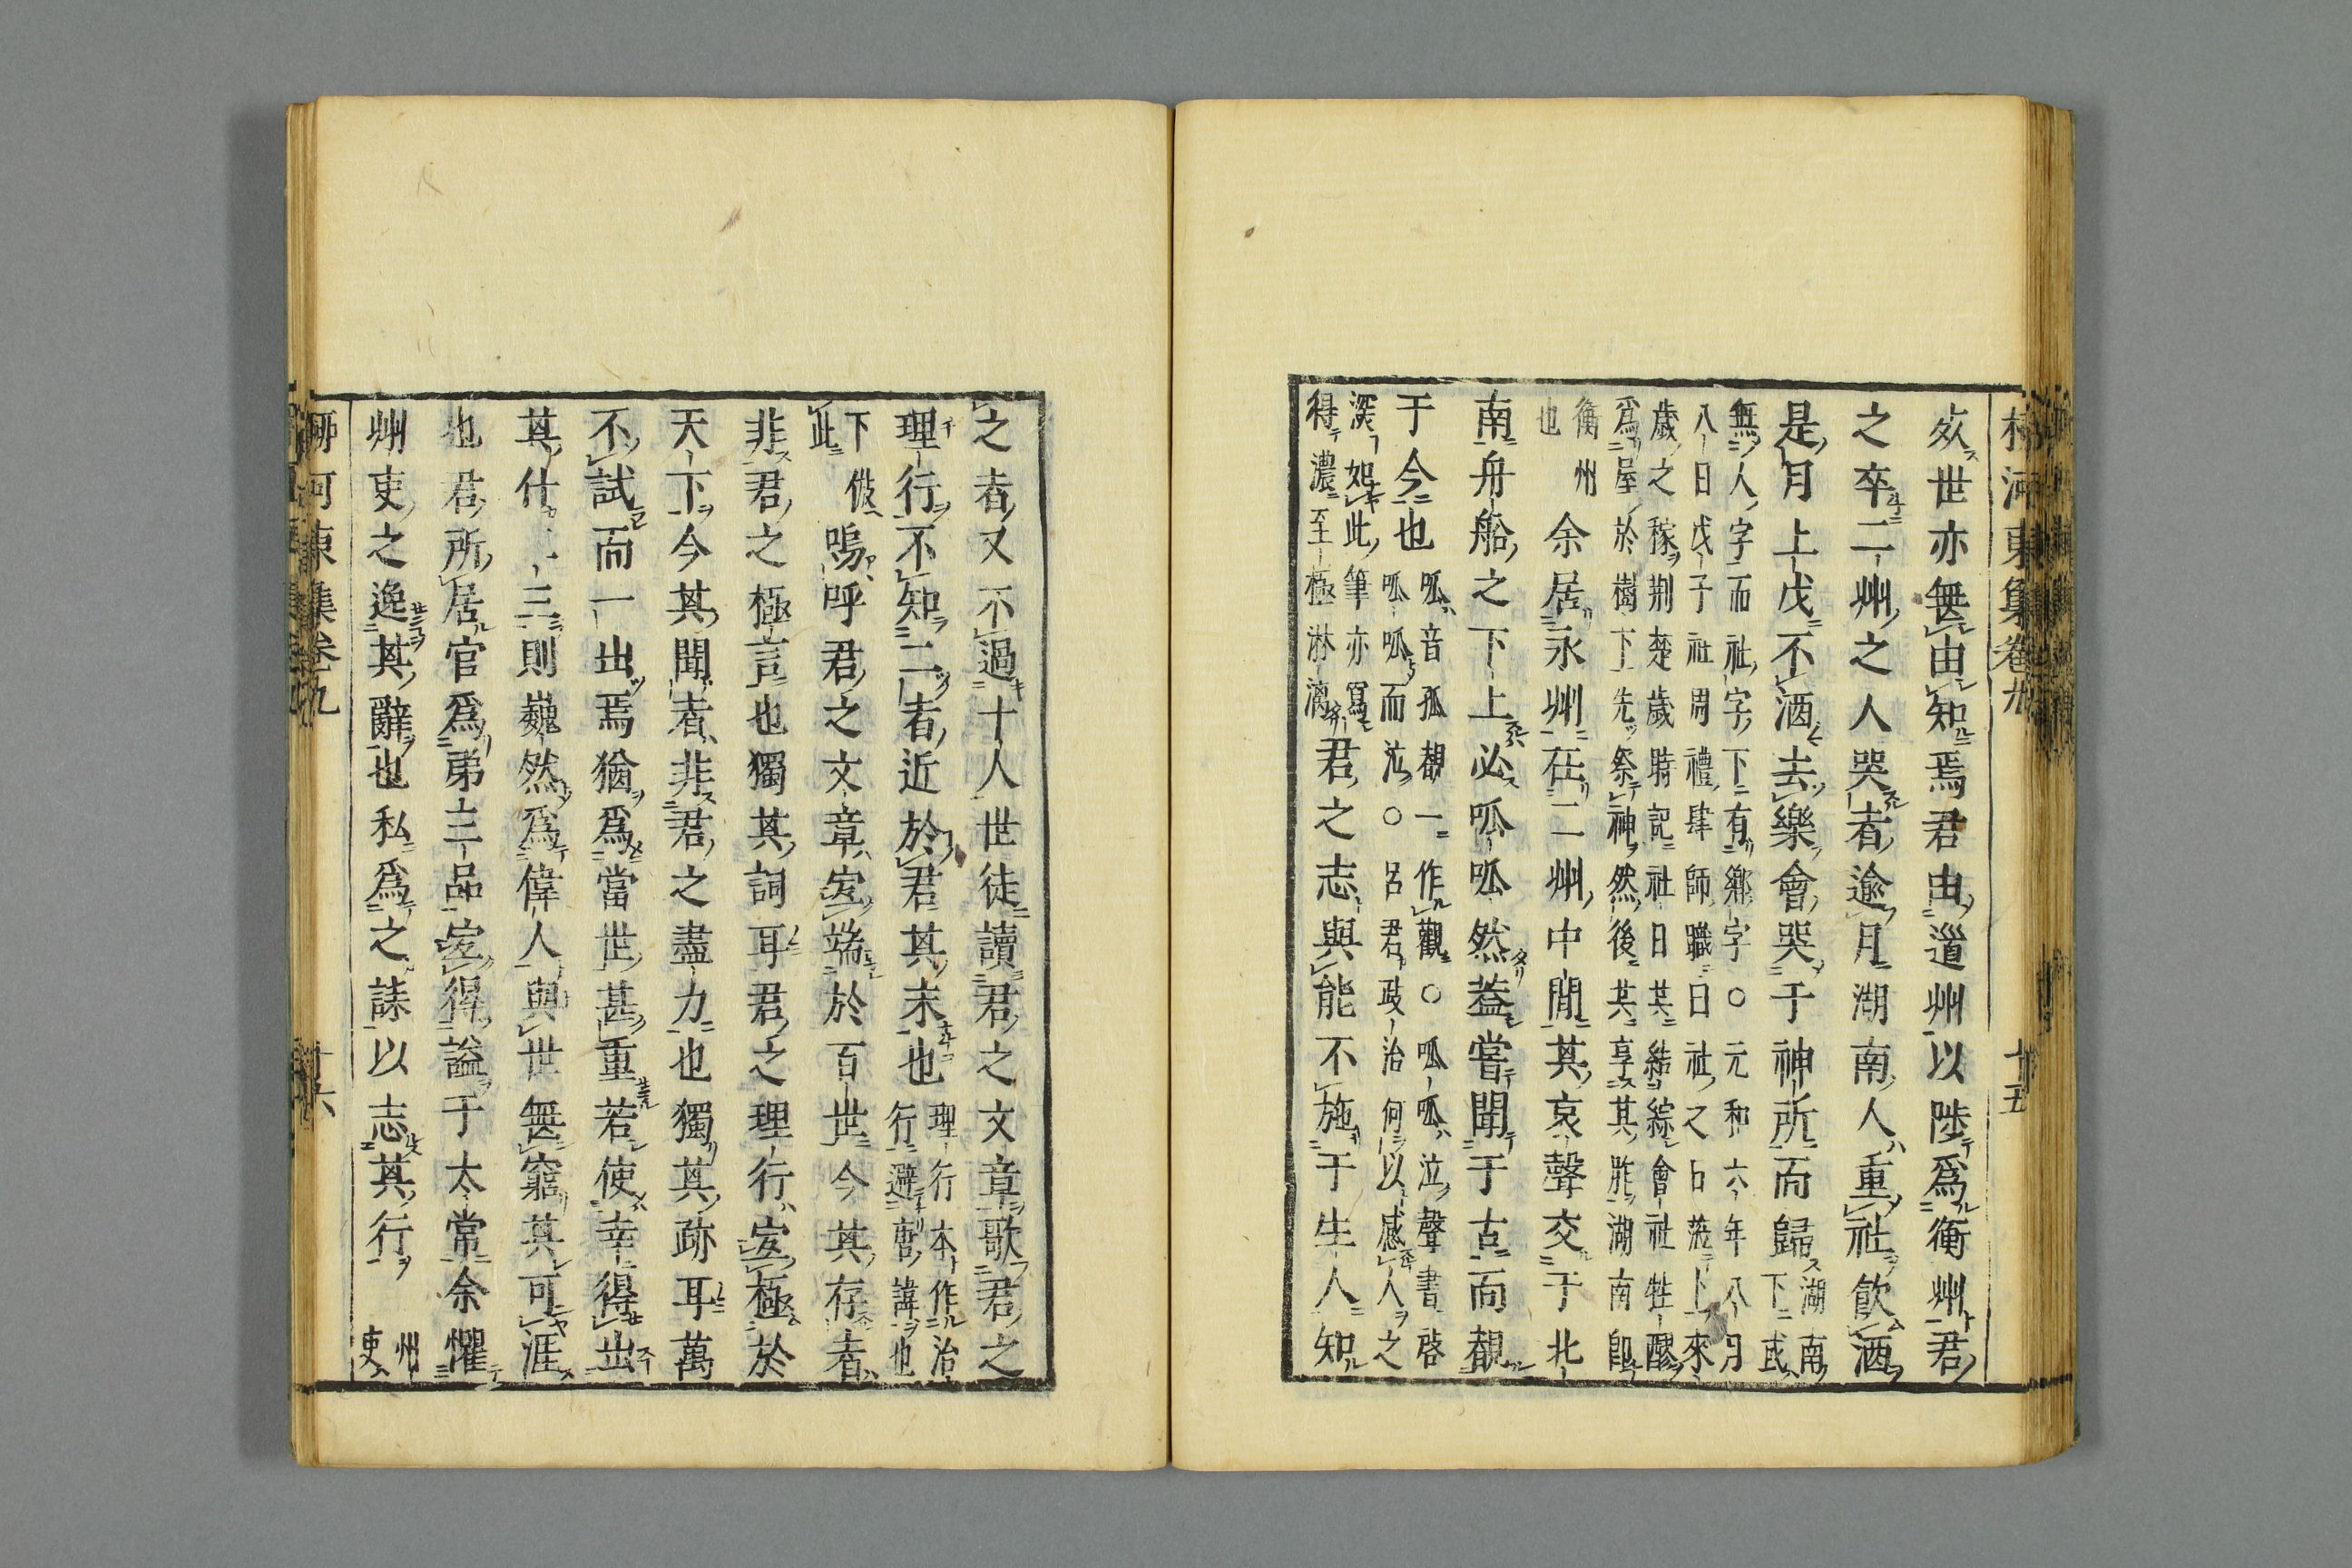 柳河東集卷九　十五
㱙世亦無由知焉君由道州以陟爲衡州君
之卒二州之人哭者逾月湖南人重社飮酒
是月上戊不酒去樂會哭于神所而歸湖南下或
無人字而社字下有鄕字○元和六年八月
八日戊子社周禮肆師職曰社之日涖卜來
歲之稼荆楚歲時記社日其結綜會社牲醪
爲屋於樹下先祭神然後其享其胙湖南卽
衡州也余居永州在二州中閒其哀聲交于北
南舟船之下上必呱呱然葢嘗聞于古而覩
于今也呱音孤覩一作觀○呱呱泣聲書啓呱呱而泣○呂君政治何以感人之
深如此筆亦寫得濃至極淋漓君之志與能不施于生人知
之者又不過十人世徒讀君之文章歌君之
理行不知二者近於君其末也理行本作治行避唐諱也
下倣此嗚呼君之文章宐端於百世今其存者
非君之極言也獨其詞耳君之理行宐極於
天下今其聞者非君之盡力也獨其跡耳萬
不試而一出焉猶爲當世甚重若使幸得出
其什二三則巍然爲偉人與世無窮其可涯
也君所居官爲弟三品宐得謚于太常余懼
州吏之逸其辭也私爲之誄以志其行州吏
柳河東集卷九　十六